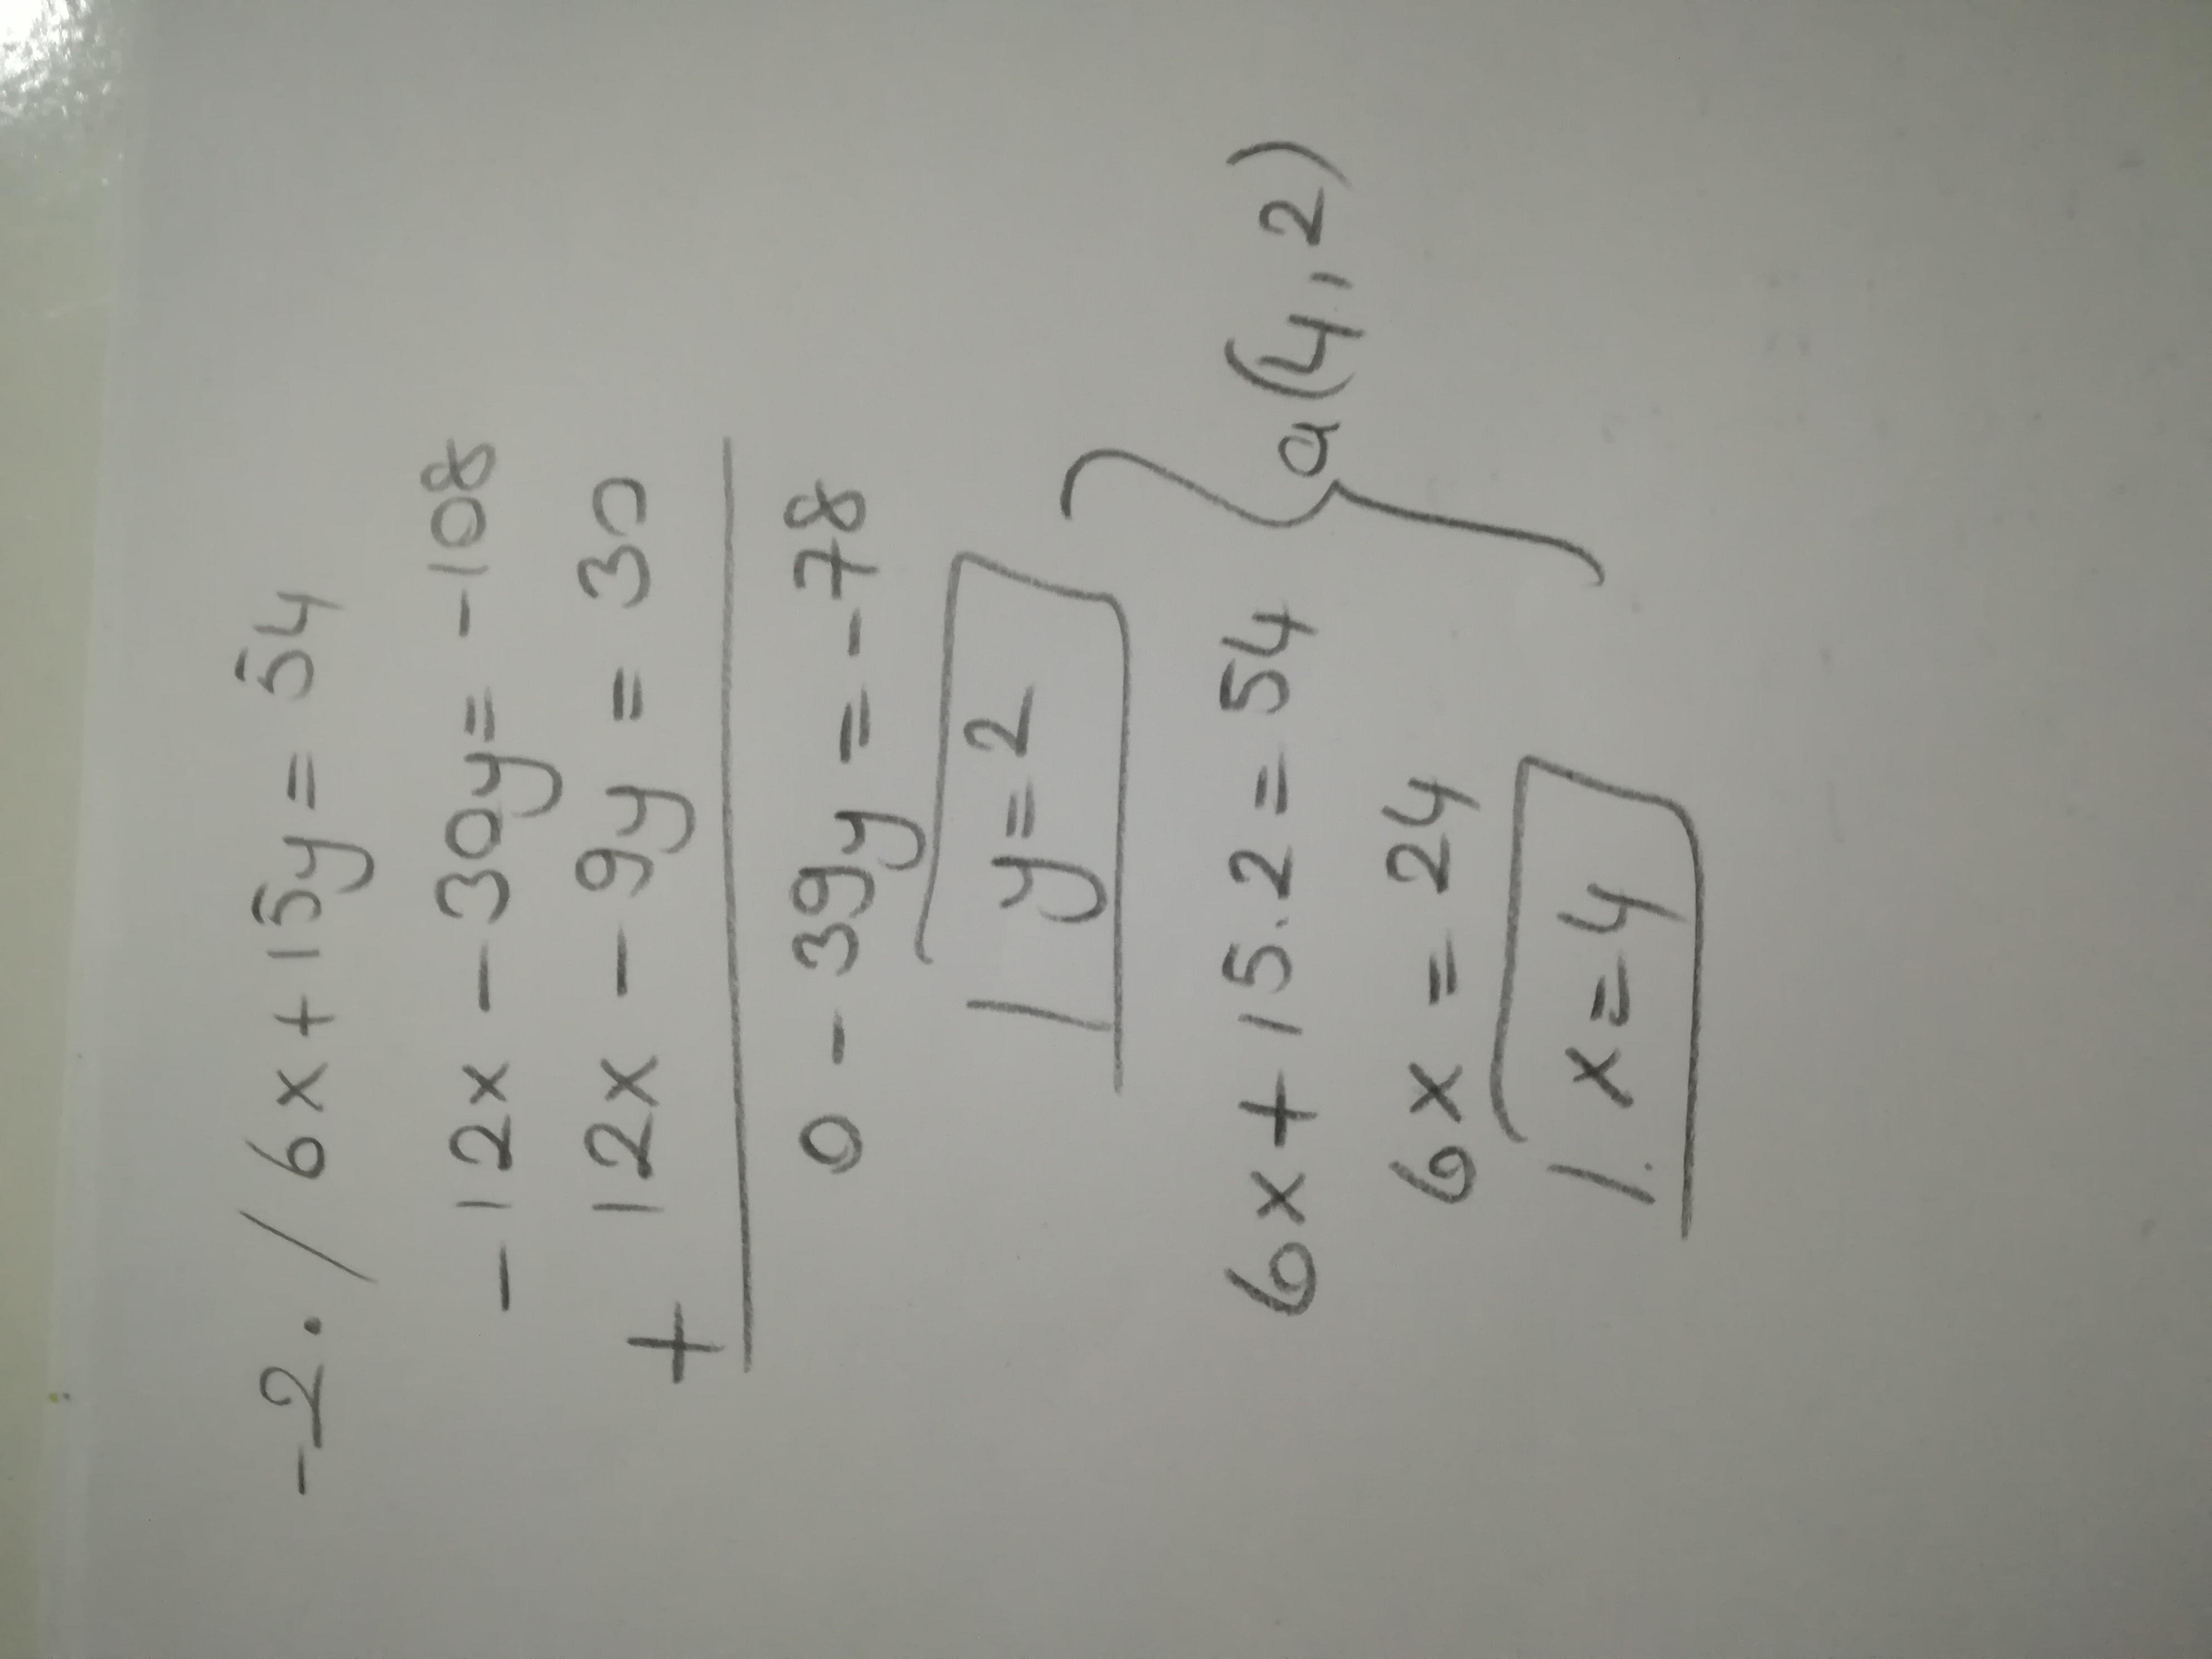 -2. / 6x + 15y = 54
-12x - 30y = -108
+ 12x - 9y = 30
0 - 39y = -78
y = 2
6x + 15.2 = 54
a(4, 2)
6x = 24
x = 4